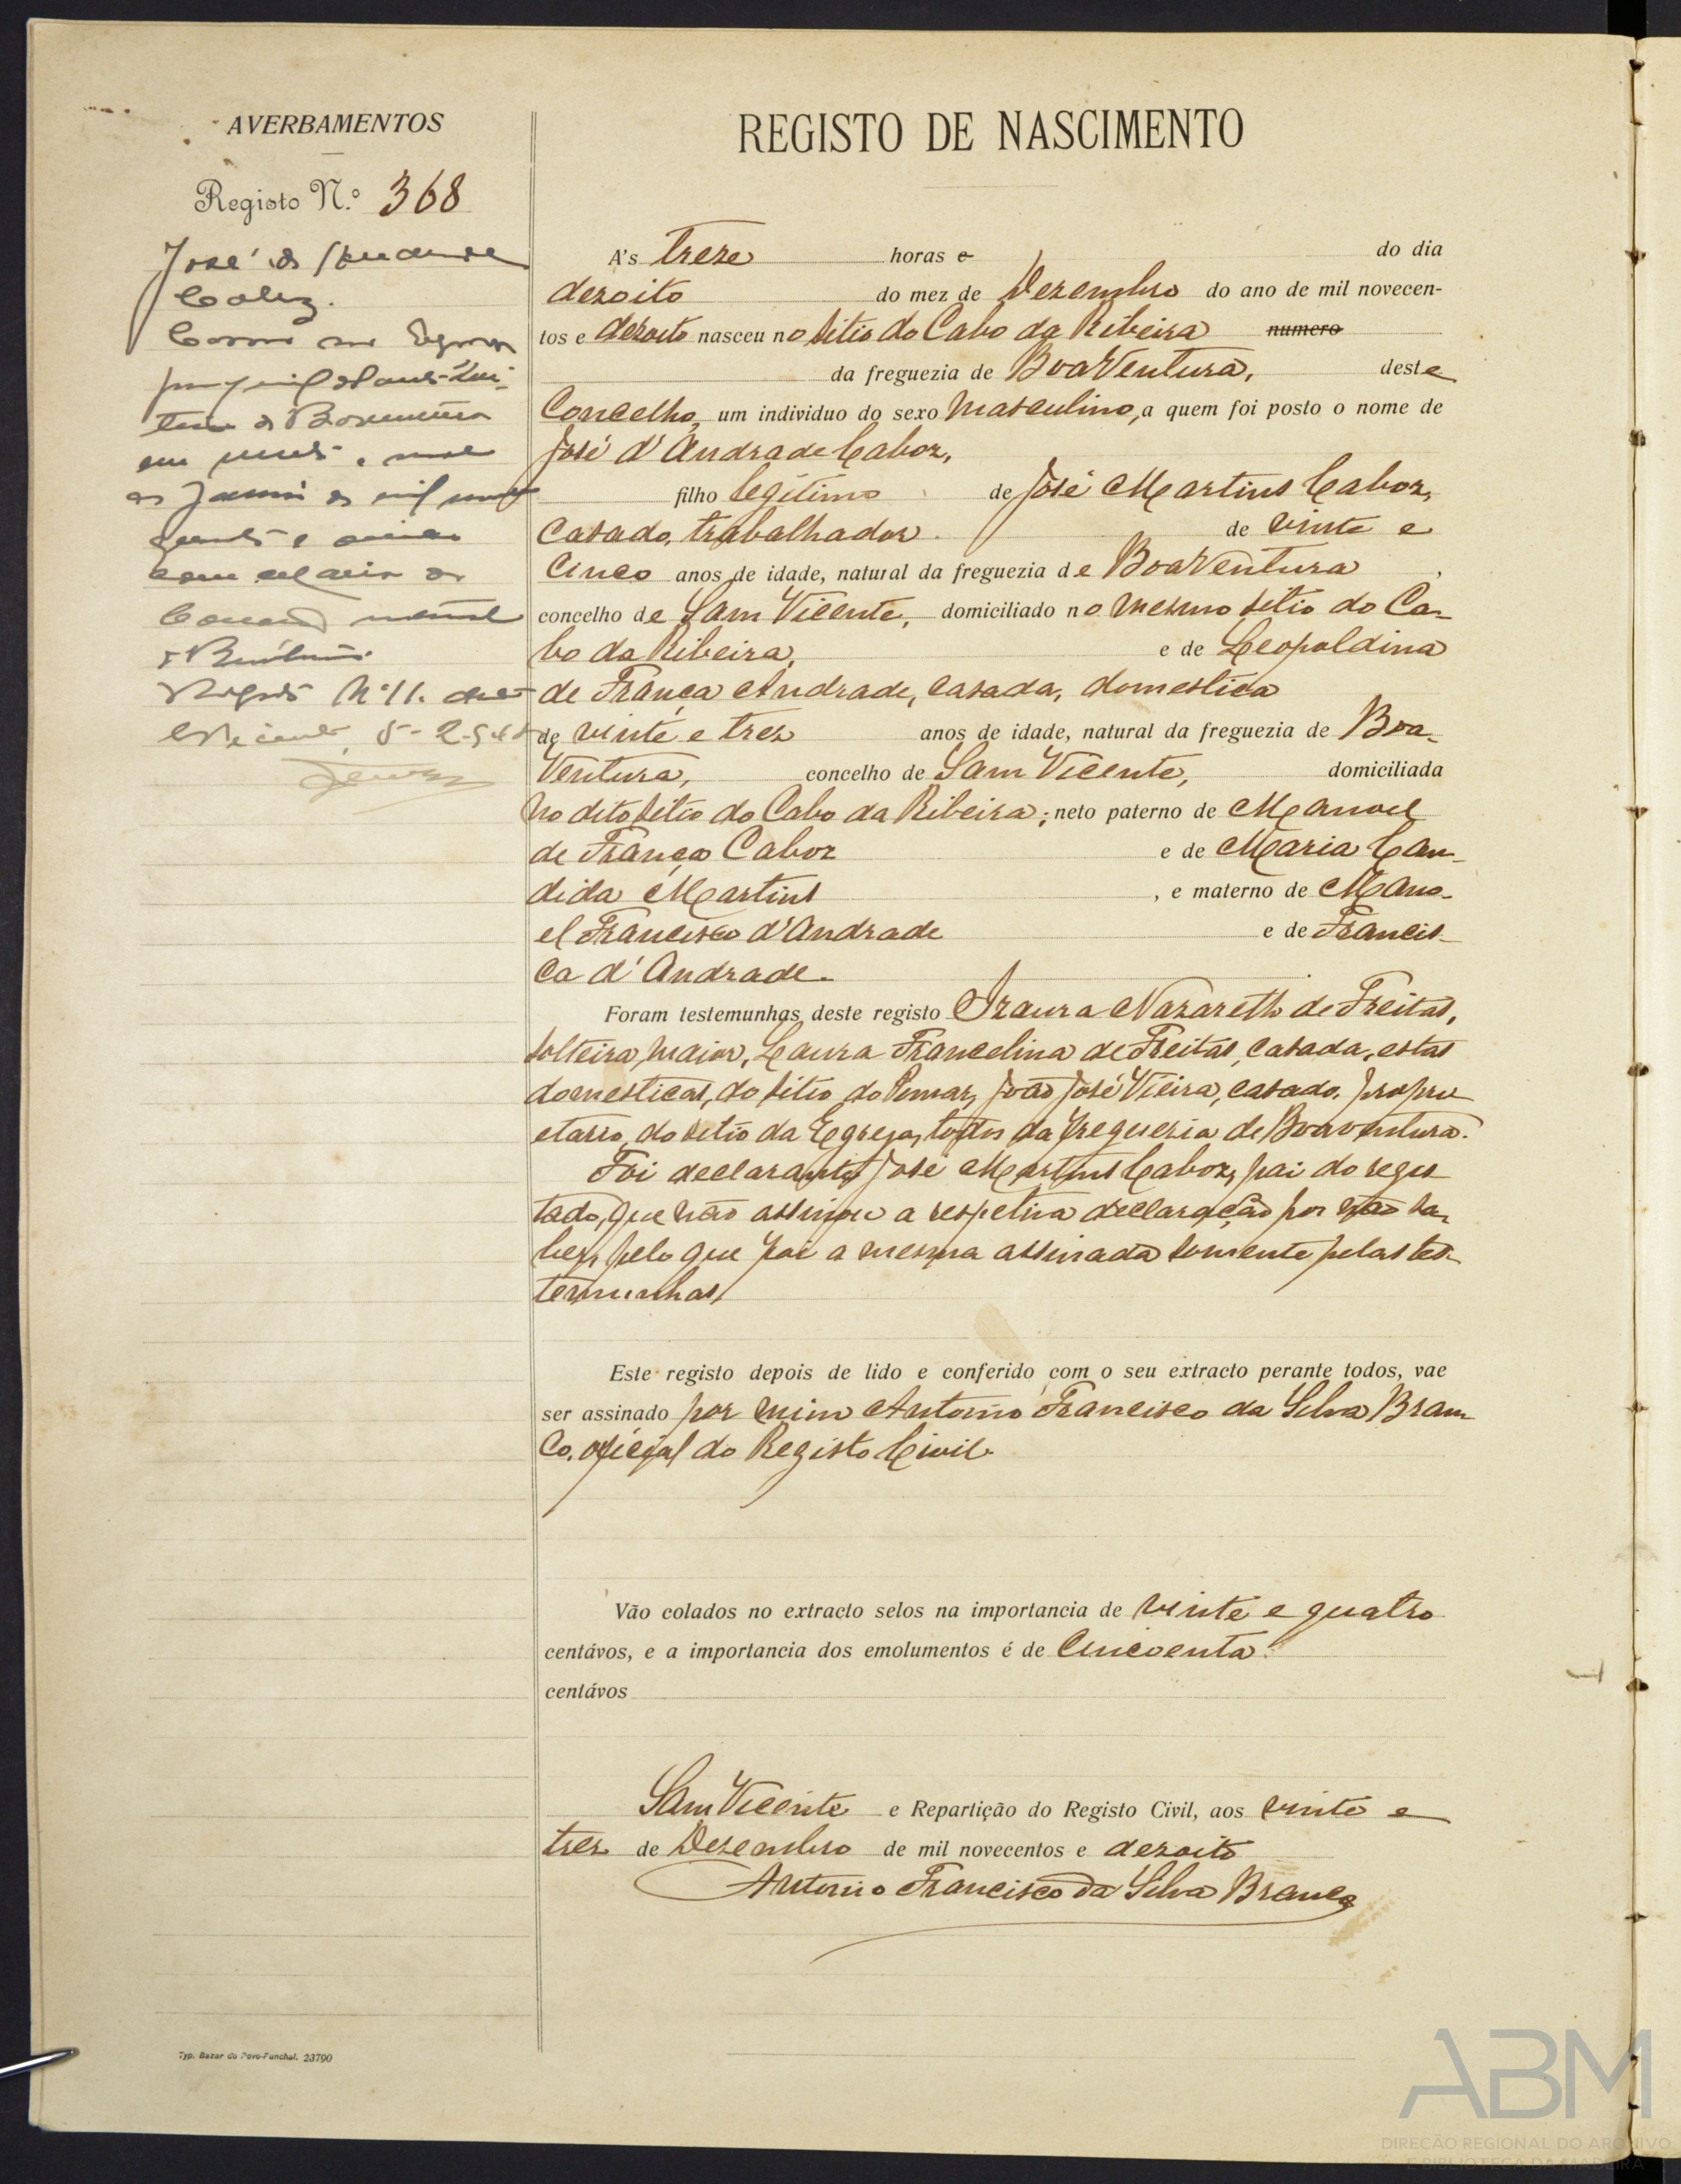 AVERBAMENTOS
Registo N.º 368
José de Andrade
Caboz.
Casou na Egreja
em
de mil nove
Registo Nº 11.
REGISTO DE NASCIMENTO
A's treze horas e do dia
dezoito do mez de Dezembro do ano de mil novecen-
tos e dezoito nasceu no sitio do Cabo da Ribeira numero
da freguezia de BoaVentura, deste
Concelho, um individuo do sexo masculino, a quem foi posto o nome de
José d'Andrade Caboz,
filho legitimo de José Martins Caboz,
casado, trabalhador de vinte e
cinco anos de idade, natural da freguezia de BoaVentura,
concelho de Sam Vicente, domiciliado no mesmo sitio do Ca-
bo da Ribeira, e de Leopoldina
de França Andrade, casada, domestica
de vinte e trez anos de idade, natural da freguezia de Boa-
Ventura, concelho de Sam Vicente, domiciliada
no dito sitio do Cabo da Ribeira; neto paterno de Manoel
de França Caboz e de Maria Can-
dida Martins, e materno de Mano-
el Francisco d'Andrade e de Francis-
ca d'Andrade.
Foram testemunhas deste registo Izaura Nazareth de Freitas,
solteira, maior, Laura Francelina de Freitas, casada, estas
domesticas, do sitio do Pomar, João José Vieira, casado, propri
etario, do sitio da Egreja, todos da freguezia de Boaventura.
Foi declarante José Martins Caboz, pai do regis
tado, que não assinou a respetiva declaração por não sa-
ber, pelo que foi a mesma assinada somente pelas tes-
temunhas,
Este registo depois de lido e conferido com o seu extracto perante todos, vae
ser assinado por mim Antonio Francisco da Silva Bran
co, oficial do Registo Civil.
Vão colados no extracto selos na importancia de vinte e quatro
centávos, e a importancia dos emolumentos é de cincoenta
centávos
Sam Vicente e Repartição do Registo Civil, aos vinte e
trez de Dezembro de mil novecentos e dezoito
Antonio Francisco da Silva Branco
Typ. Bazar do Povo-Funchal. 23790
ABM
DIREÇÃO REGIONAL DO ARQUIVO
E BIBLIOTECA DA MADEIRA